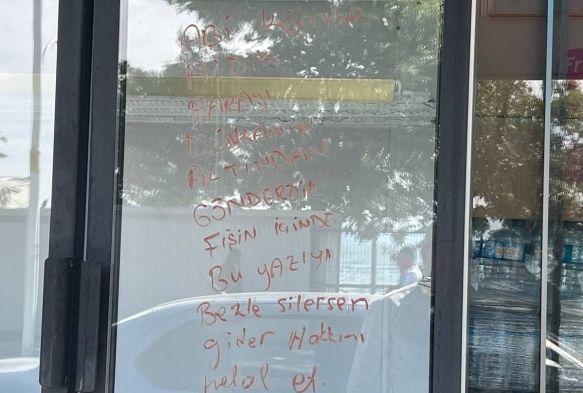 ABİ KÖMÜR
ALDIK
PARAYI
DÜKANIN
ALTINDAN
GÖNDERDİK
FİŞİN İÇİNDE
Bu yAZIYI
Bezle silersen
gider Hakkını
helal et
Fr